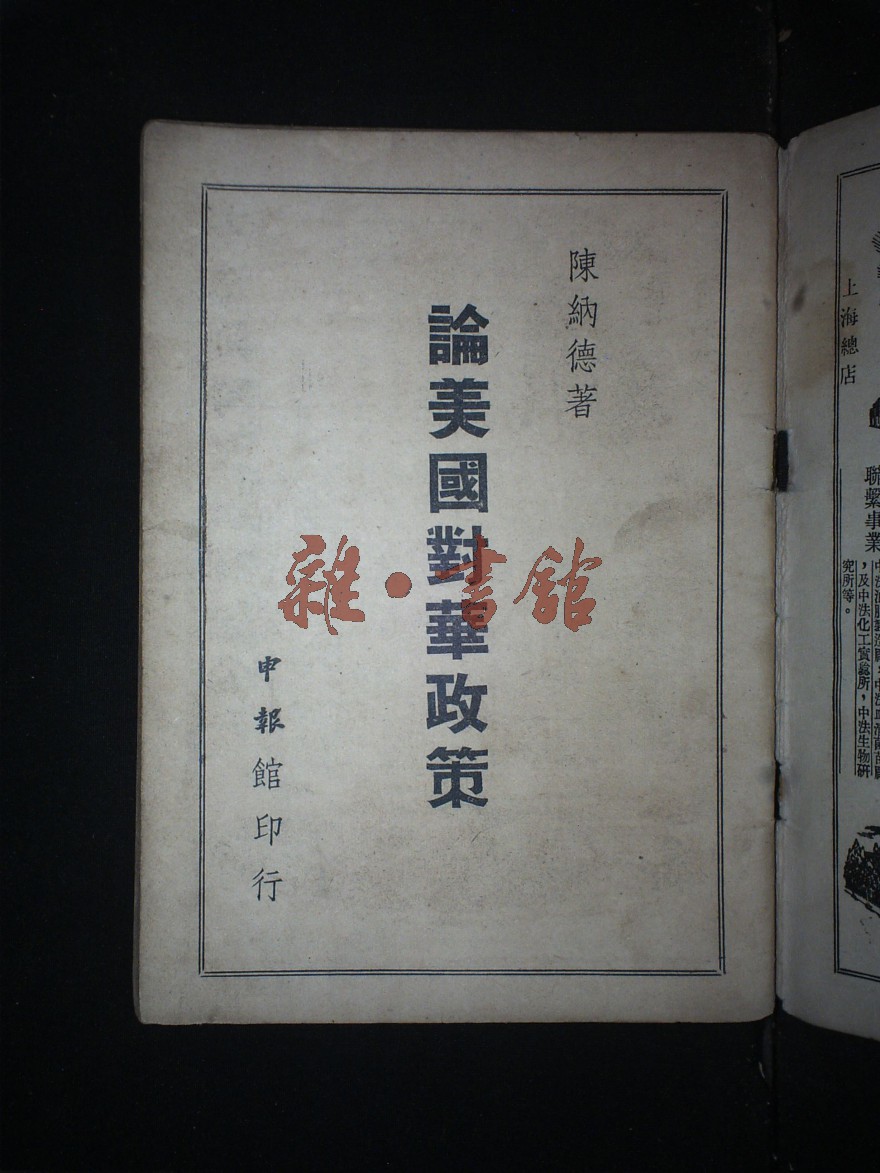 陳納德著
論美國對華政策
申報館印行
雜·書館
上海總店
聯繫事業
，及中法化工實驗所，中法生物研
究所等。